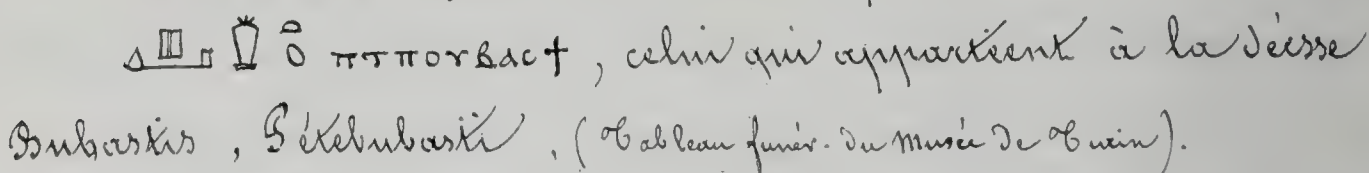 ⲡⲧⲡⲟⲩⲃⲁⲥϯ, celui qui appartient à la déesse
Bubastis, Pétébubasti, (Tableau funér. du Musée de Turin).